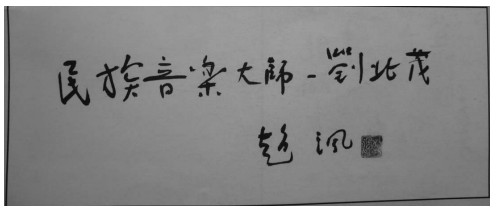 民族音楽大师-劉北茂
赵沨